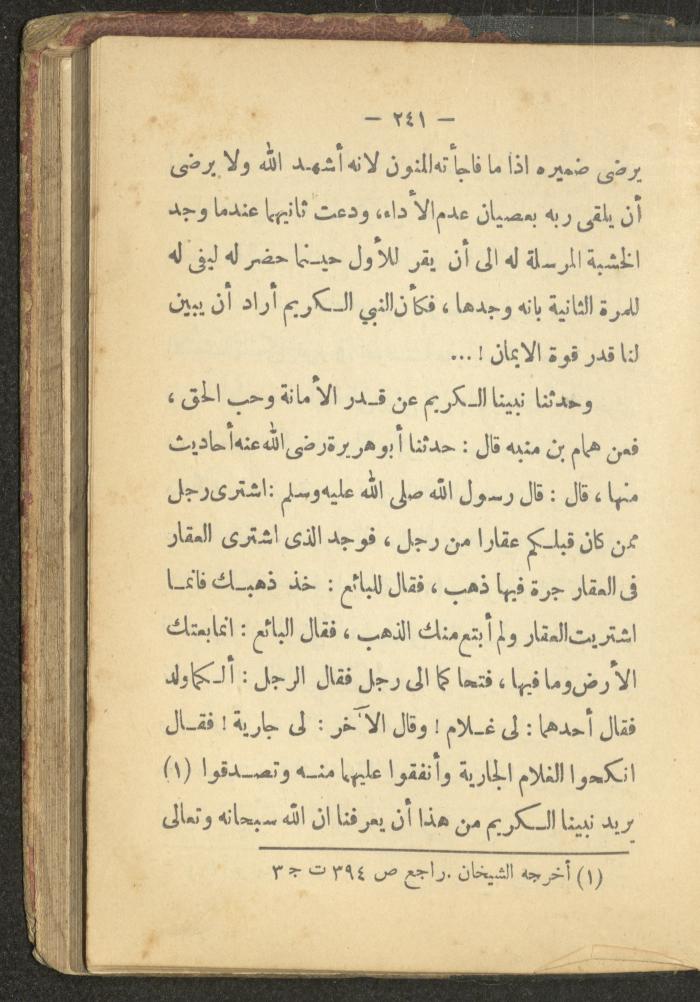 — ٢٤١ —
يرضى ضميره اذا ما فاجأته المنون لانه أشهد الله ولا يرضى
أن يلقى ربه بعصيان عدم الأداء، ودعت ثانيهما عندما وجد
الخشبة المرسلة له الى أن يقر للأول حينما حضر له ليفى له
للمرة الثانية بانه وجدها ، فكأن النبي الكريم أراد أن يبين
لنا قدر قوة الايمان ! ...
وحدثنا نبينا الكريم عن قدر الأمانة وحب الحق ،
فعن همام بن منبه قال : حدثنا أبو هريرة رضى الله عنه أحاديث
منها ، قال : قال رسول الله صلى الله عليه وسلم : اشترى رجل
ممن كان قبلكم عقارا من رجل ، فوجد الذى اشترى العقار
فى العقار جرة فيها ذهب ، فقال للبائع : خذ ذهبك فانما
اشتريت العقار ولم أبتع منك الذهب ، فقال البائع : انما بعتك
الأرض وما فيها ، فتحا كما الى رجل فقال الرجل : ألكما ولد
فقال أحدهما : لى غلام ! وقال الآخر : لى جارية ! فقال
انكحوا الغلام الجارية وأنفقوا عليهما منه وتصدقوا (١)
يريد نبينا الكريم من هذا أن يعرفنا ان الله سبحانه وتعالى
(١) أخرجه الشيخان . راجع ص ٣٩٤ ت ج ٣